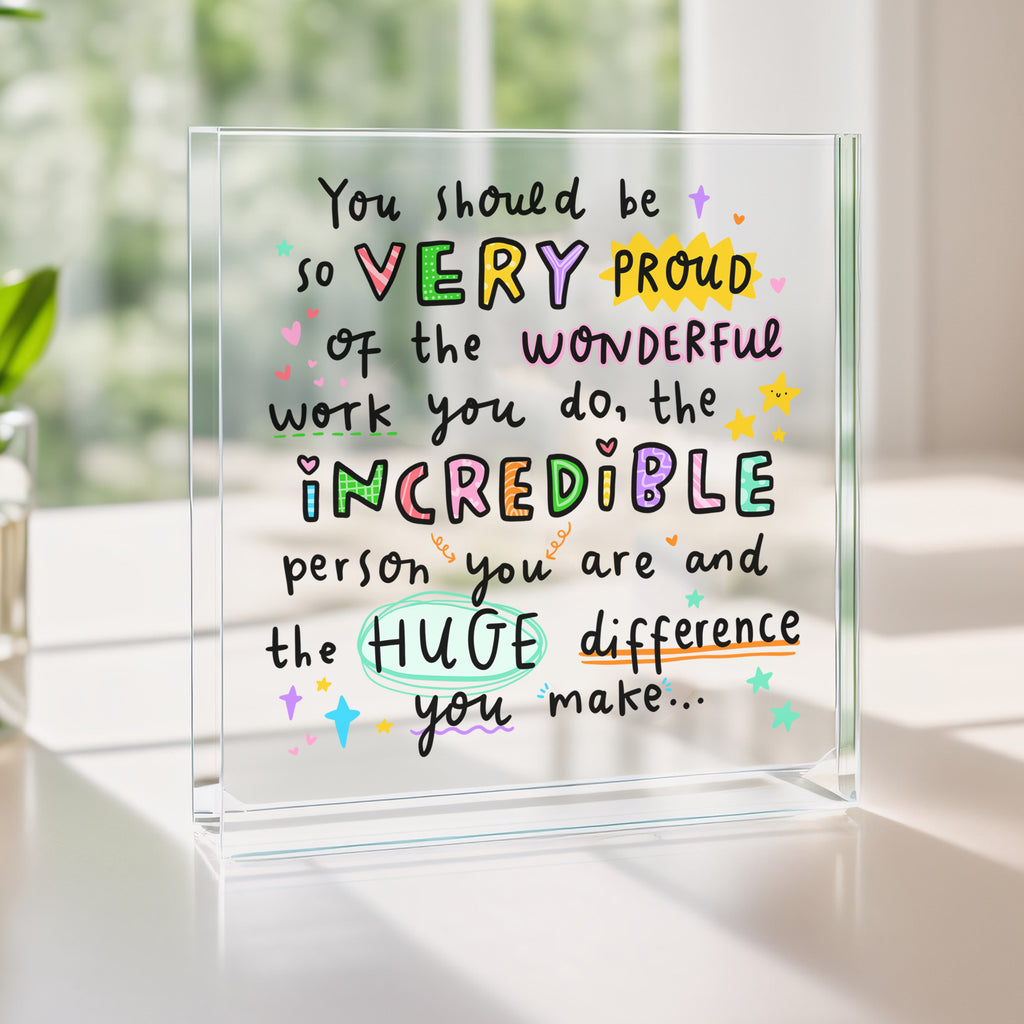 You should be
so VERY PROUD
of the WONDERFUL
work you do, the
iNCREDiBLE
person you are and
the HUGE difference
you make...